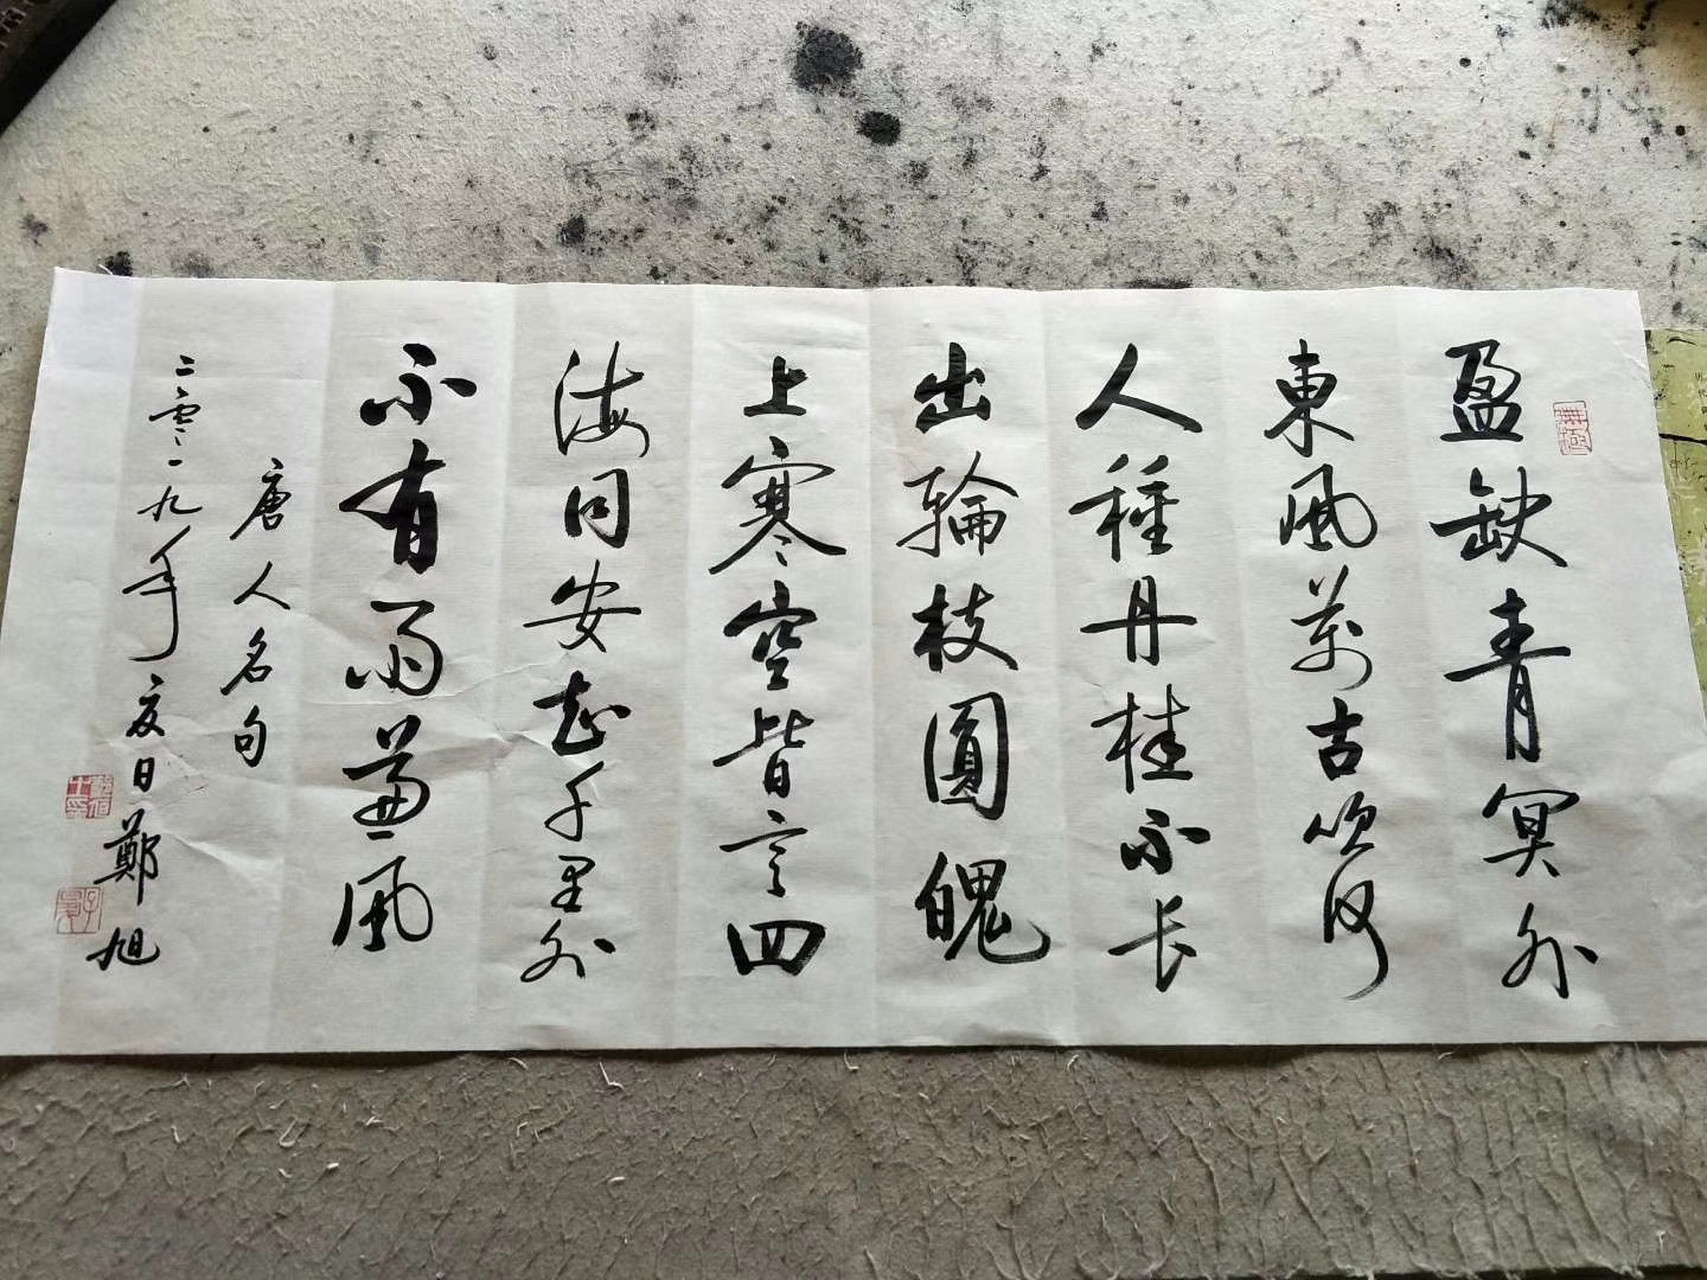 盈缺青冥外
東風萬古吹何
人種丹桂不長
出輪枝圓魄
上寒空皆言四
海同安知千里外
不有雨兼風
唐人名句
二零一九年夏日鄭旭
無極